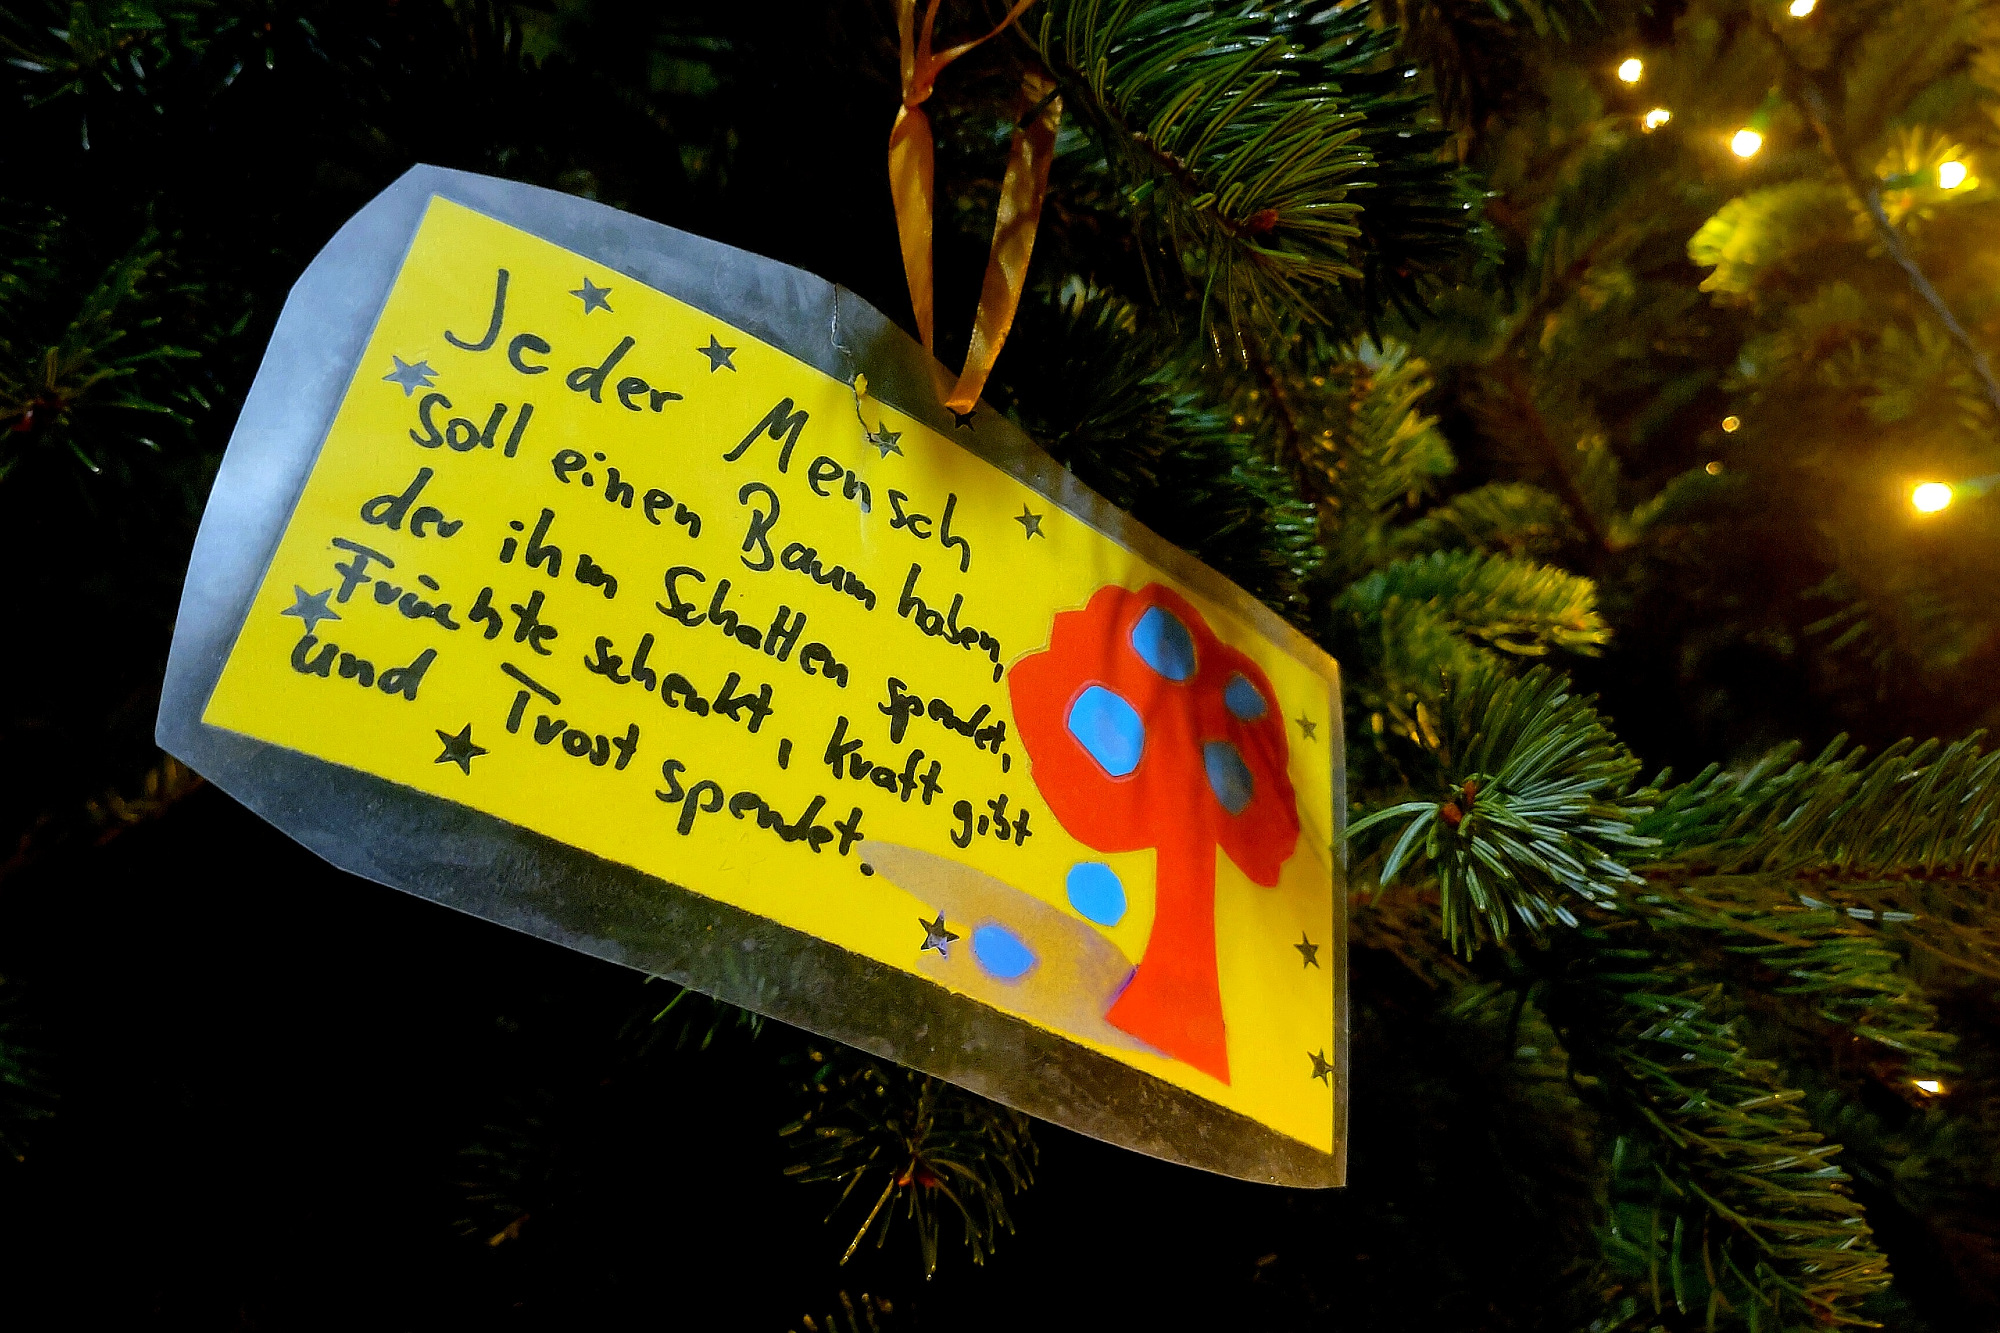 Jeder Mensch
soll einen Baum haben,
der ihm Schatten spendet,
Früchte schenkt, Kraft gibt
und Trost spendet.